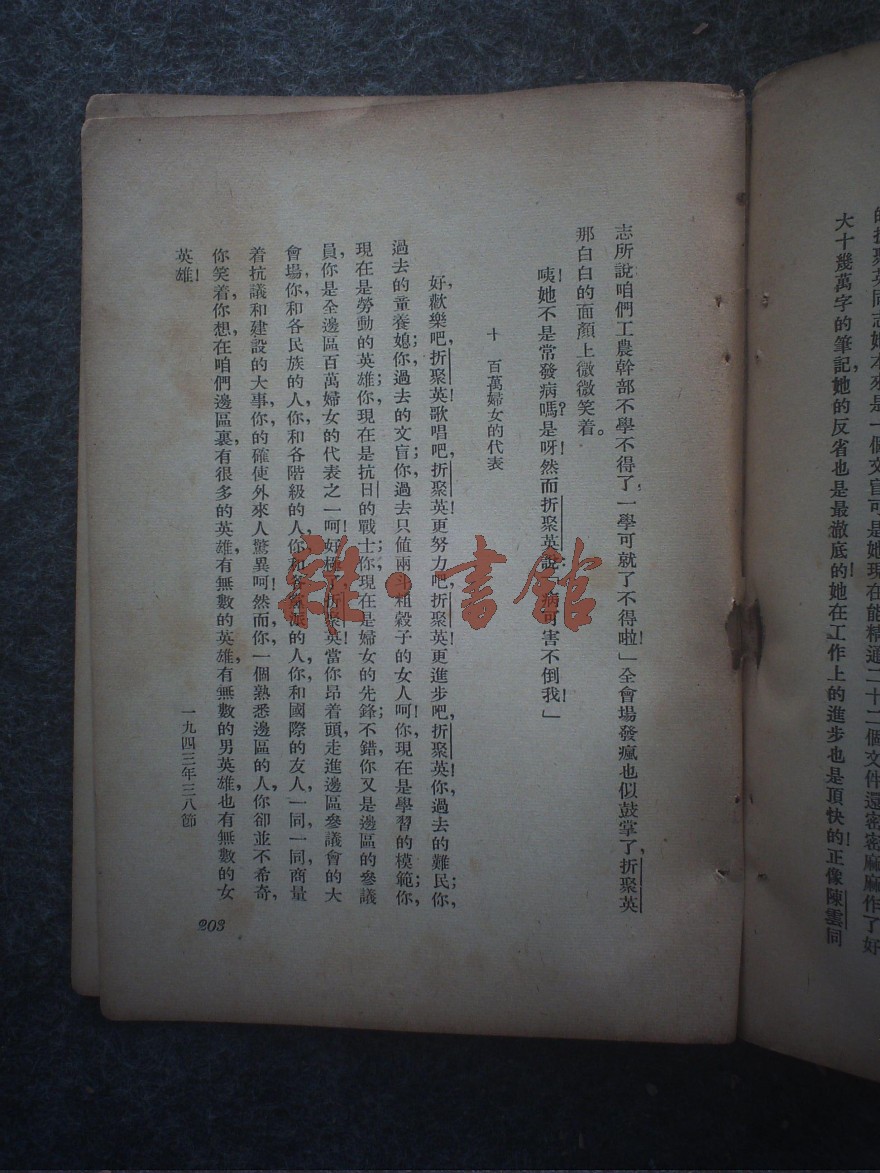 的折聚英同志她本來是一個文盲可是她現在能精通二十二個文件還密密麻麻作了好
大十幾萬字的筆記，她的反省也是最澈底的！她在工作上的進步也是頂快的！正像陳雲同
志所說咱們工農幹部不學不得了，一學可就了不得啦！」全會場發瘋也似鼓掌了，折聚英
那白白的面顏上微微笑着。
咦！她不是常發病嗎？是呀！然而折聚英說：「病可害不倒我！」
十　百萬婦女的代表
好，歡樂吧，折聚英！歌唱吧，折聚英！更努力吧，折聚英！更進步吧，折聚英！你，過去的難民；你，
過去的童養媳；你，過去的文盲；你，過去只值兩斗粗穀子的女人呵！你，現在是學習的模範；你，
現在是勞動的英雄；你，現在是抗日的戰士；你，現在是婦女的先鋒；不錯，你又是邊區的參議
員，你是全邊區百萬婦女的代表之一呵！好極了，折聚英！當你昂着頭，走進邊區參議會的大
會場，你和各民族的人，你和各階級的人，你和各黨派的人，你和國際的友人，一同一同，商量
着抗議和建設的大事，你，的確使外來人驚異呵！然而，你，一個熟悉邊區的人，你卻並不希奇，
你笑着，你想，在咱們邊區裏，有很多的英雄，有無數的英雄，有無數的男英雄，也有無數的女
英雄！
一九四三年三八節
203
雜·書館